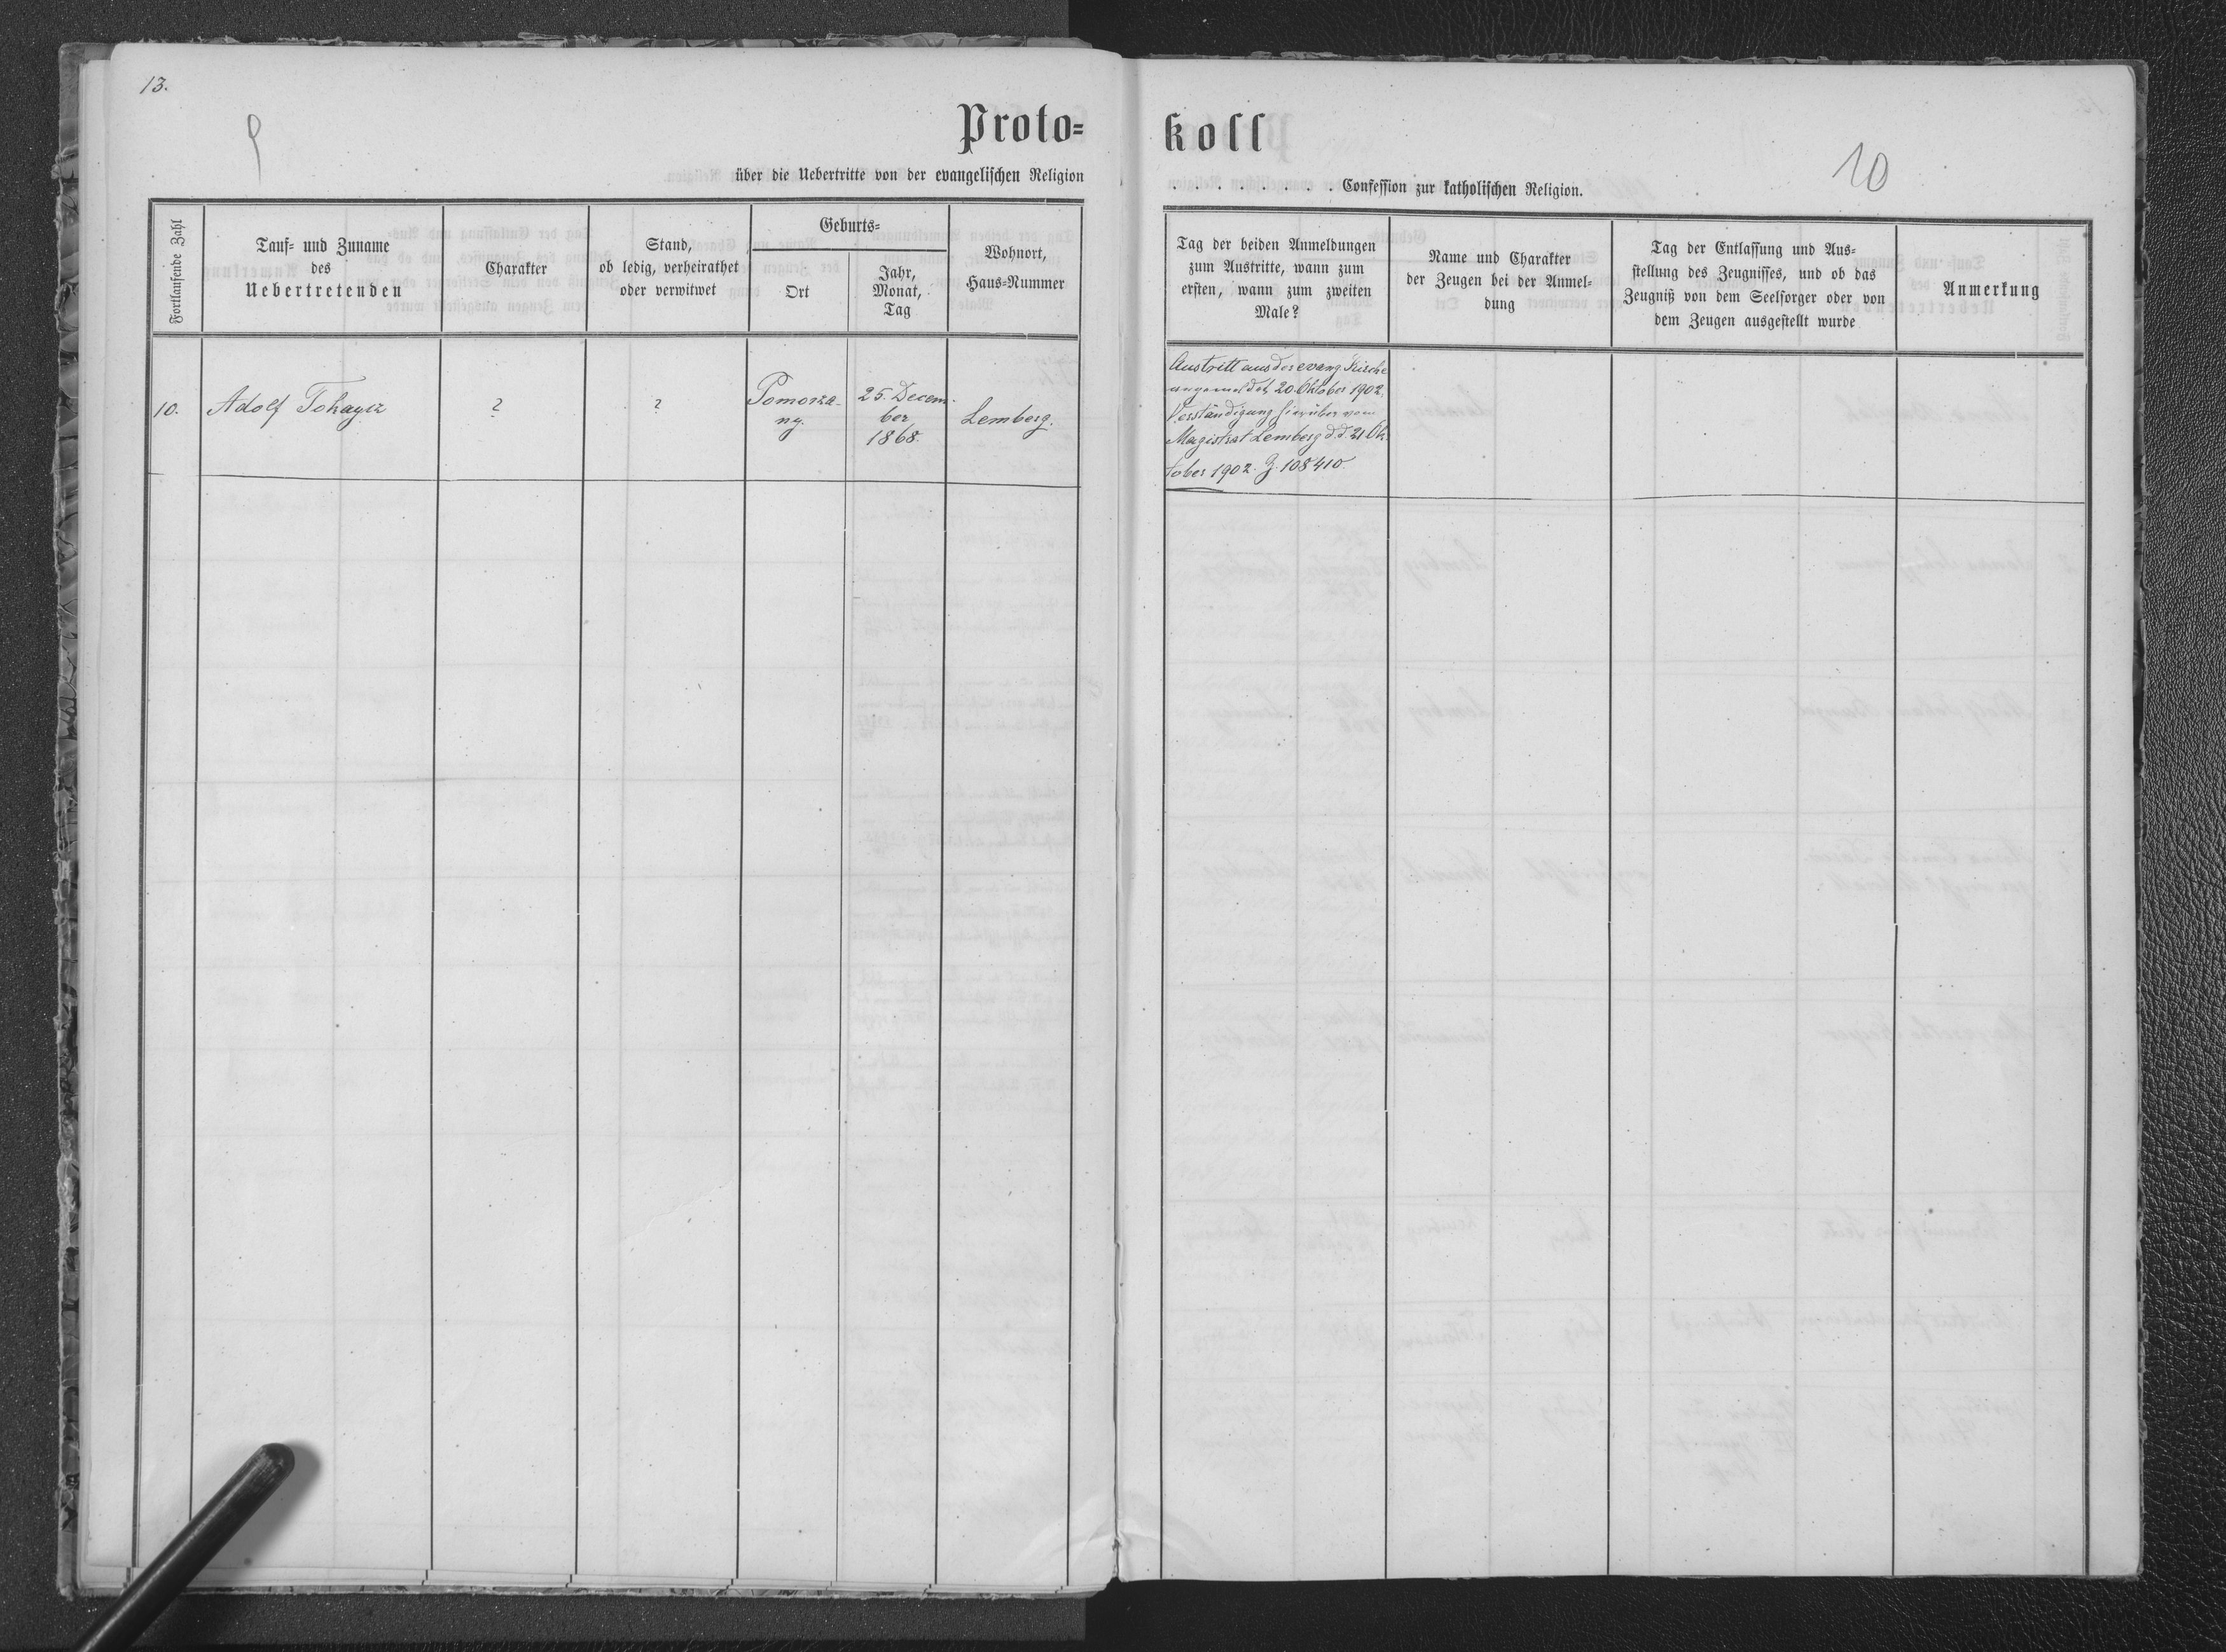 13.
9
Proto=
über die Uebertritte von der evangelischen Religion
Fortlaufende Zahl
Tauf= und Zuname
des
Uebertretenden
Charakter
Stand,
ob ledig, verheirathet
oder verwitwet
Geburts=
Ort
Jahr,
Monat,
Tag
Wohnort,
Haus=Nummer
10.
Adolf Tokayer
?
?
Pomorza-
ny.
25. Decem-
ber
1868.
Lemberg.
koll
10
. . . . . . . . . Confession zur katholischen Religion.
Tag der beiden Anmeldungen
zum Austritte, wann zum
ersten, wann zum zweiten
Male?
Name und Charakter
der Zeugen bei der Anmel=
dung
Tag der Entlassung und Aus=
stellung des Zeugnisses, und ob das
Zeugniß von dem Seelsorger oder von
dem Zeugen ausgestellt wurde
Anmerkung
Austritt aus der evang. Kirche
angemeldet 20. Oktober 1902,
Verständigung hierüber vom
Magistrat Lemberg d.d. 21 Ok-
tober 1902. Z. 108410.